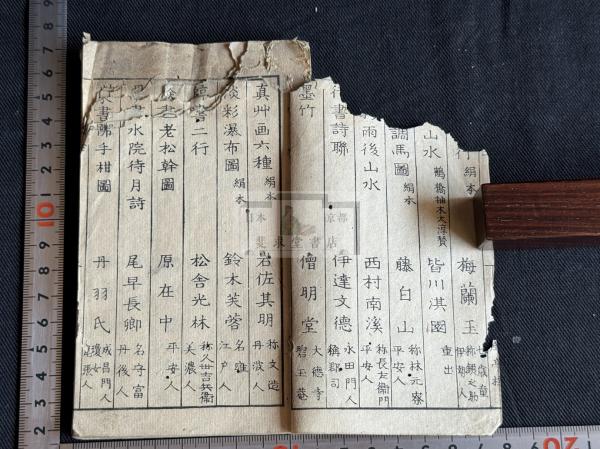 行 絹本 梅蘭玉
山水 皆川淇園 重出
調馬圖 絹本 藤白山 称林元寮 平安人
雨後山水 西村南溪 称長左衛門 平安人
書詩聯 伊達文德 永田門人 稱郡司
墨竹 僧明堂 大徳寺 碧玉菴
真艸画六種 絹本 岩佐其明 称文造 丹波人
淡彩瀑布圖 絹本 鈴木芙蓉 名雍 江戸人
書二行 松舎光林 美濃人
老松幹圖 原在中 平安人
水院待月詩 尾早長卿 名守富 丹後人
佛手柑圖 丹羽氏 成昌門人 瓊女 尾張人
日本 京都
書店
10